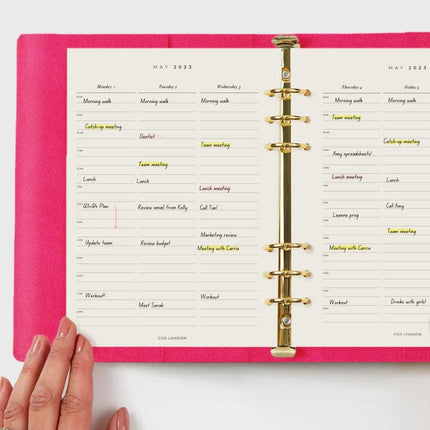 MAY 2023
Monday 1
Tuesday 2
Wednesday 3
Morning walk
Morning walk
Morning walk
Catch-up meeting
Dentist
Team meeting
Team meeting
Lunch
Lunch
Lunch meeting
Q3+Q4 Plan
Review email from Kelly
Call Tim!
Marketing review
Update team
Review budget
Meeting with Carrie
Workout!
Workout!
Meet Sarah
CGD LONDON
MAY 2023
Thursday 4
Friday 5
Morning walk
Morning walk
Team meeting
Catch-up meeting
Amy spreadsheets!
Lunch meeting
Lunch
Leanne prog
Call Amy
Team meeting
Meeting with Carrie
Workout
Drinks with girls!
CGD LONDON